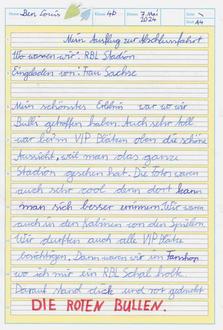 Name Ben Louis Klasse 4b Datum 7. Mai 2024 Seite A4
Mein Ausflug zur Abschlussfahrt
Wo waren wir?: RBL Stadion
Eingeladen von: Frau Sachse
Mein schönstes Erlebnis war wo wir
Bulli getroffen haben. Auch sehr toll
war beim VIP Plätzen oben die schöne
Aussicht, weil man das ganze
Stadion gesehen hat. Die Tour waren
auch sehr cool denn dort kann
man sich besser erinnern. Wir waren
auch in den Kabinen von den Spielern.
Wir durften auch alle VIP Plätze
besichtigen. Dann waren wir im Fanshop
wo ich mir ein RBL Schal holte.
Darauf stand dick und rot gedruckt
DIE ROTEN BULLEN.